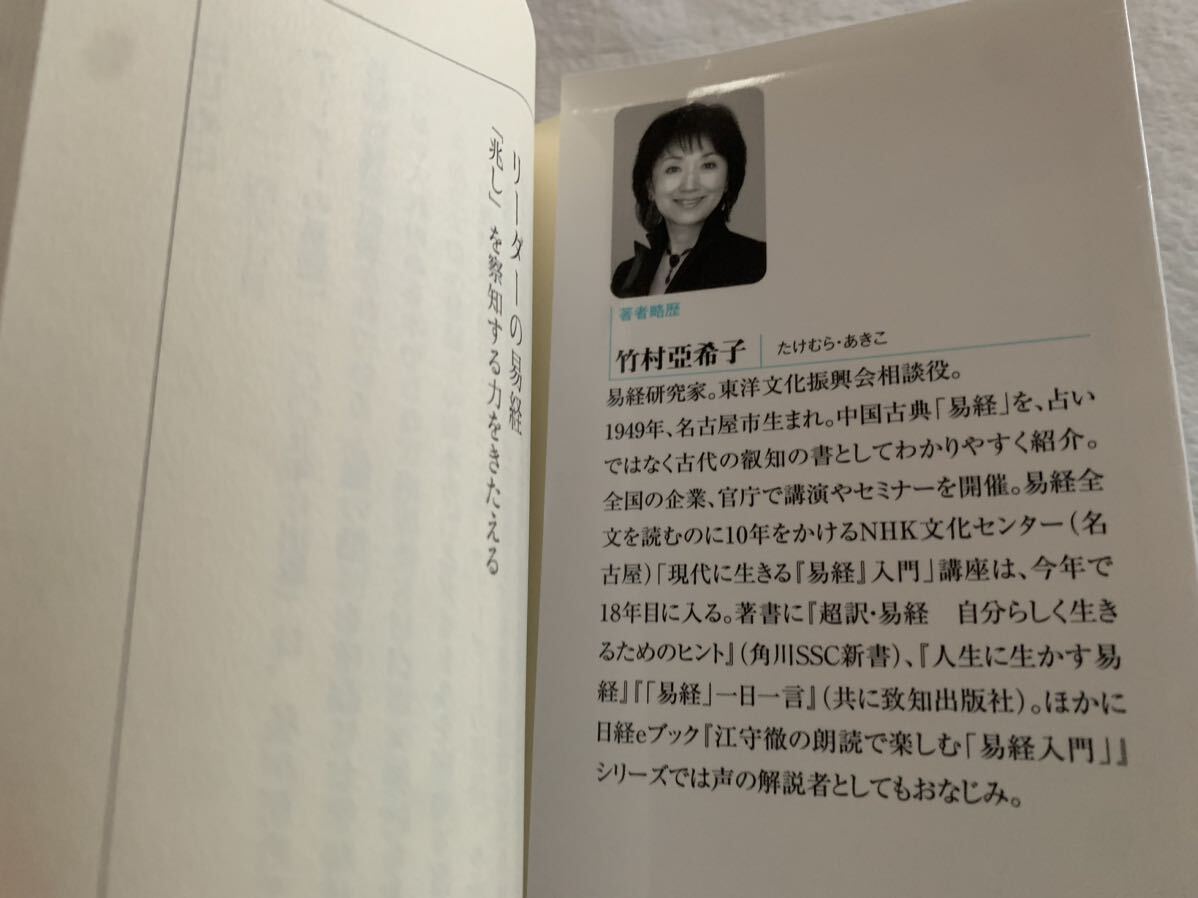 リーダーの易経
「兆し」を察知する力をきたえる
著者略歴
竹村亞希子 たけむら・あきこ
易経研究家。東洋文化振興会相談役。
1949年、名古屋市生まれ。中国古典「易経」を、占い
ではなく古代の叡知の書としてわかりやすく紹介。
全国の企業、官庁で講演やセミナーを開催。易経全
文を読むのに10年をかけるNHK文化センター(名
古屋)「現代に生きる『易経』入門」講座は、今年で
18年目に入る。著書に『超訳・易経　自分らしく生き
るためのヒント』(角川SSC新書)、『人生に生かす易
経』『「易経」一日一言』(共に致知出版社)。ほかに
日経eブック『江守徹の朗読で楽しむ「易経入門」』
シリーズでは声の解説者としてもおなじみ。